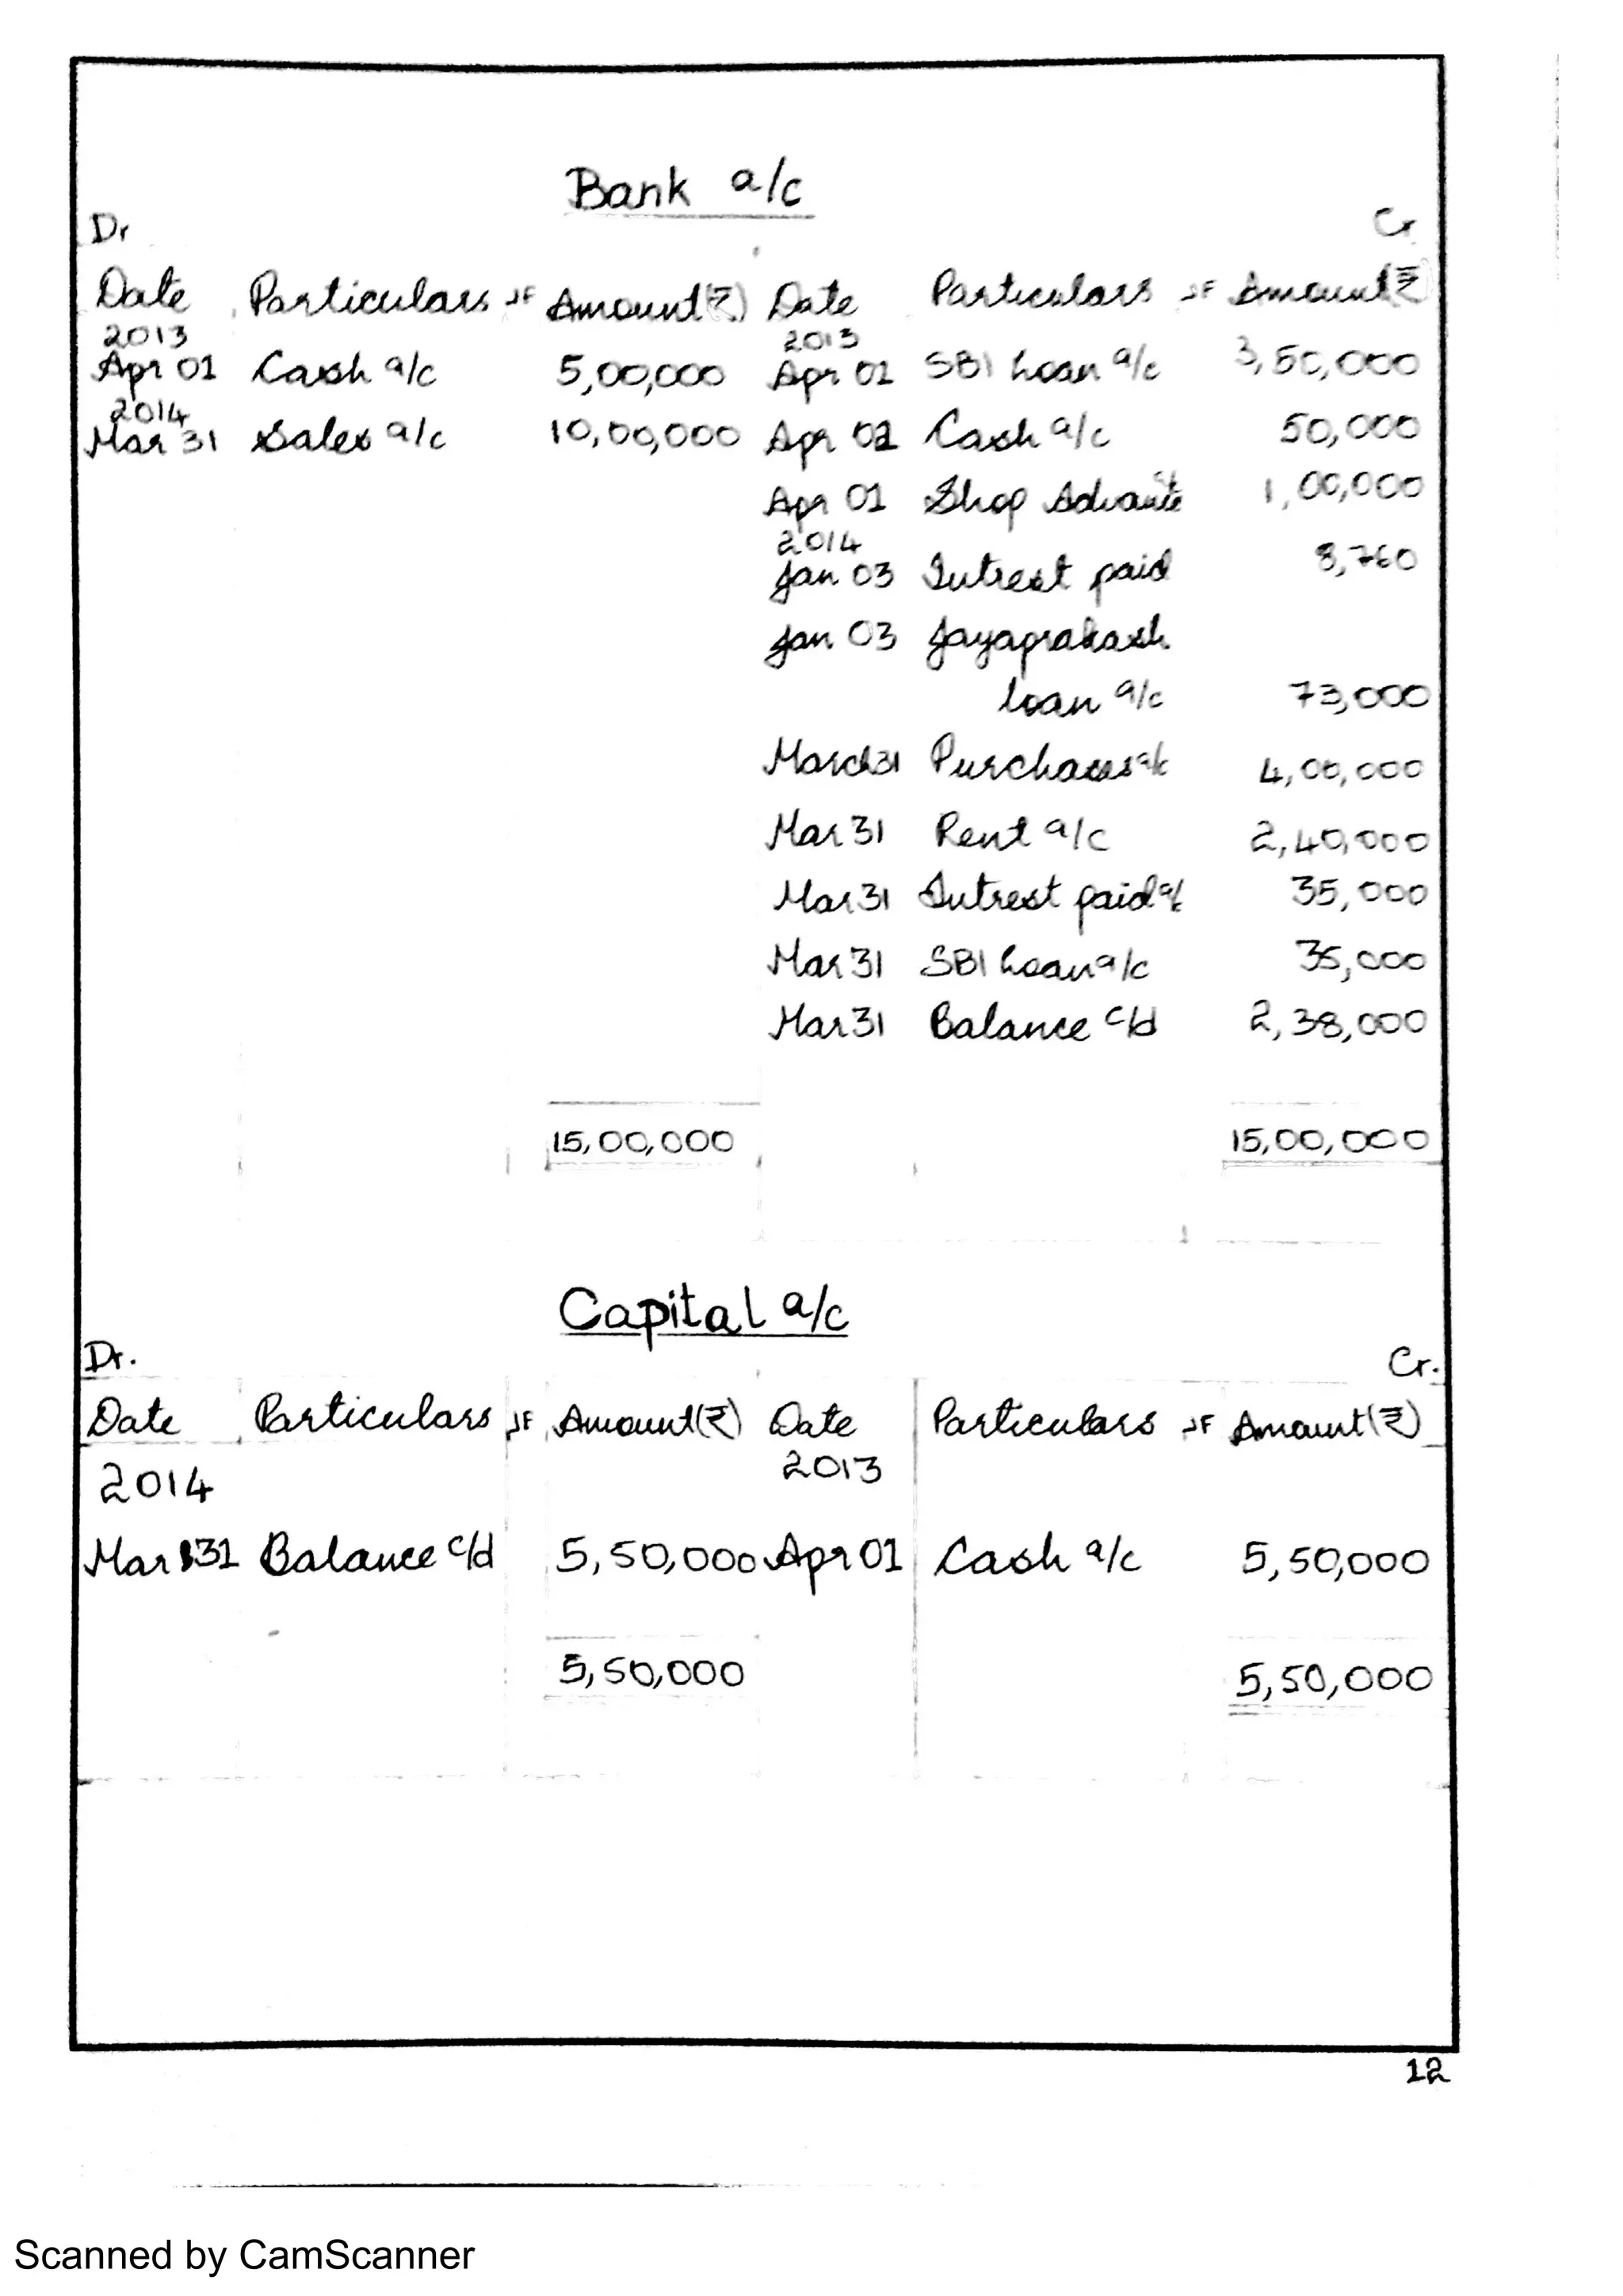 Bank a/c
Dr Cr
Date Particulars JF Amount(₹) Date Particulars JF Amount₹
2013 2013
Apr 01 Cash a/c 5,00,000 Apr 01 SBI Loan a/c 3,50,000
2014
Mar 31 Sales a/c 10,00,000 Apr 02 Cash a/c 50,000
Apr 01 Shop Advance 1,00,000
2014
Jan 03 Intrest paid 8,760
Jan 03 Jayaprakash
loan a/c 73,000
March31 Purchases a/c 4,00,000
Mar 31 Rent a/c 2,40,000
Mar 31 Intrest paid a/c 35,000
Mar 31 SBI Loan a/c 35,000
Mar 31 Balance c/d 2,38,000
15,00,000 15,00,000
Capital a/c
Dr. Cr.
Date Particulars JF Amount(₹) Date Particulars JF Amount(₹)
2014 2013
Mar 31 Balance c/d 5,50,000 Apr 01 Cash a/c 5,50,000
5,50,000 5,50,000
12
Scanned by CamScanner